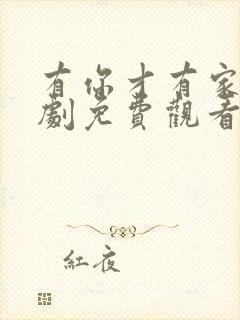 有你才有家
劇免費觀看
紅夜